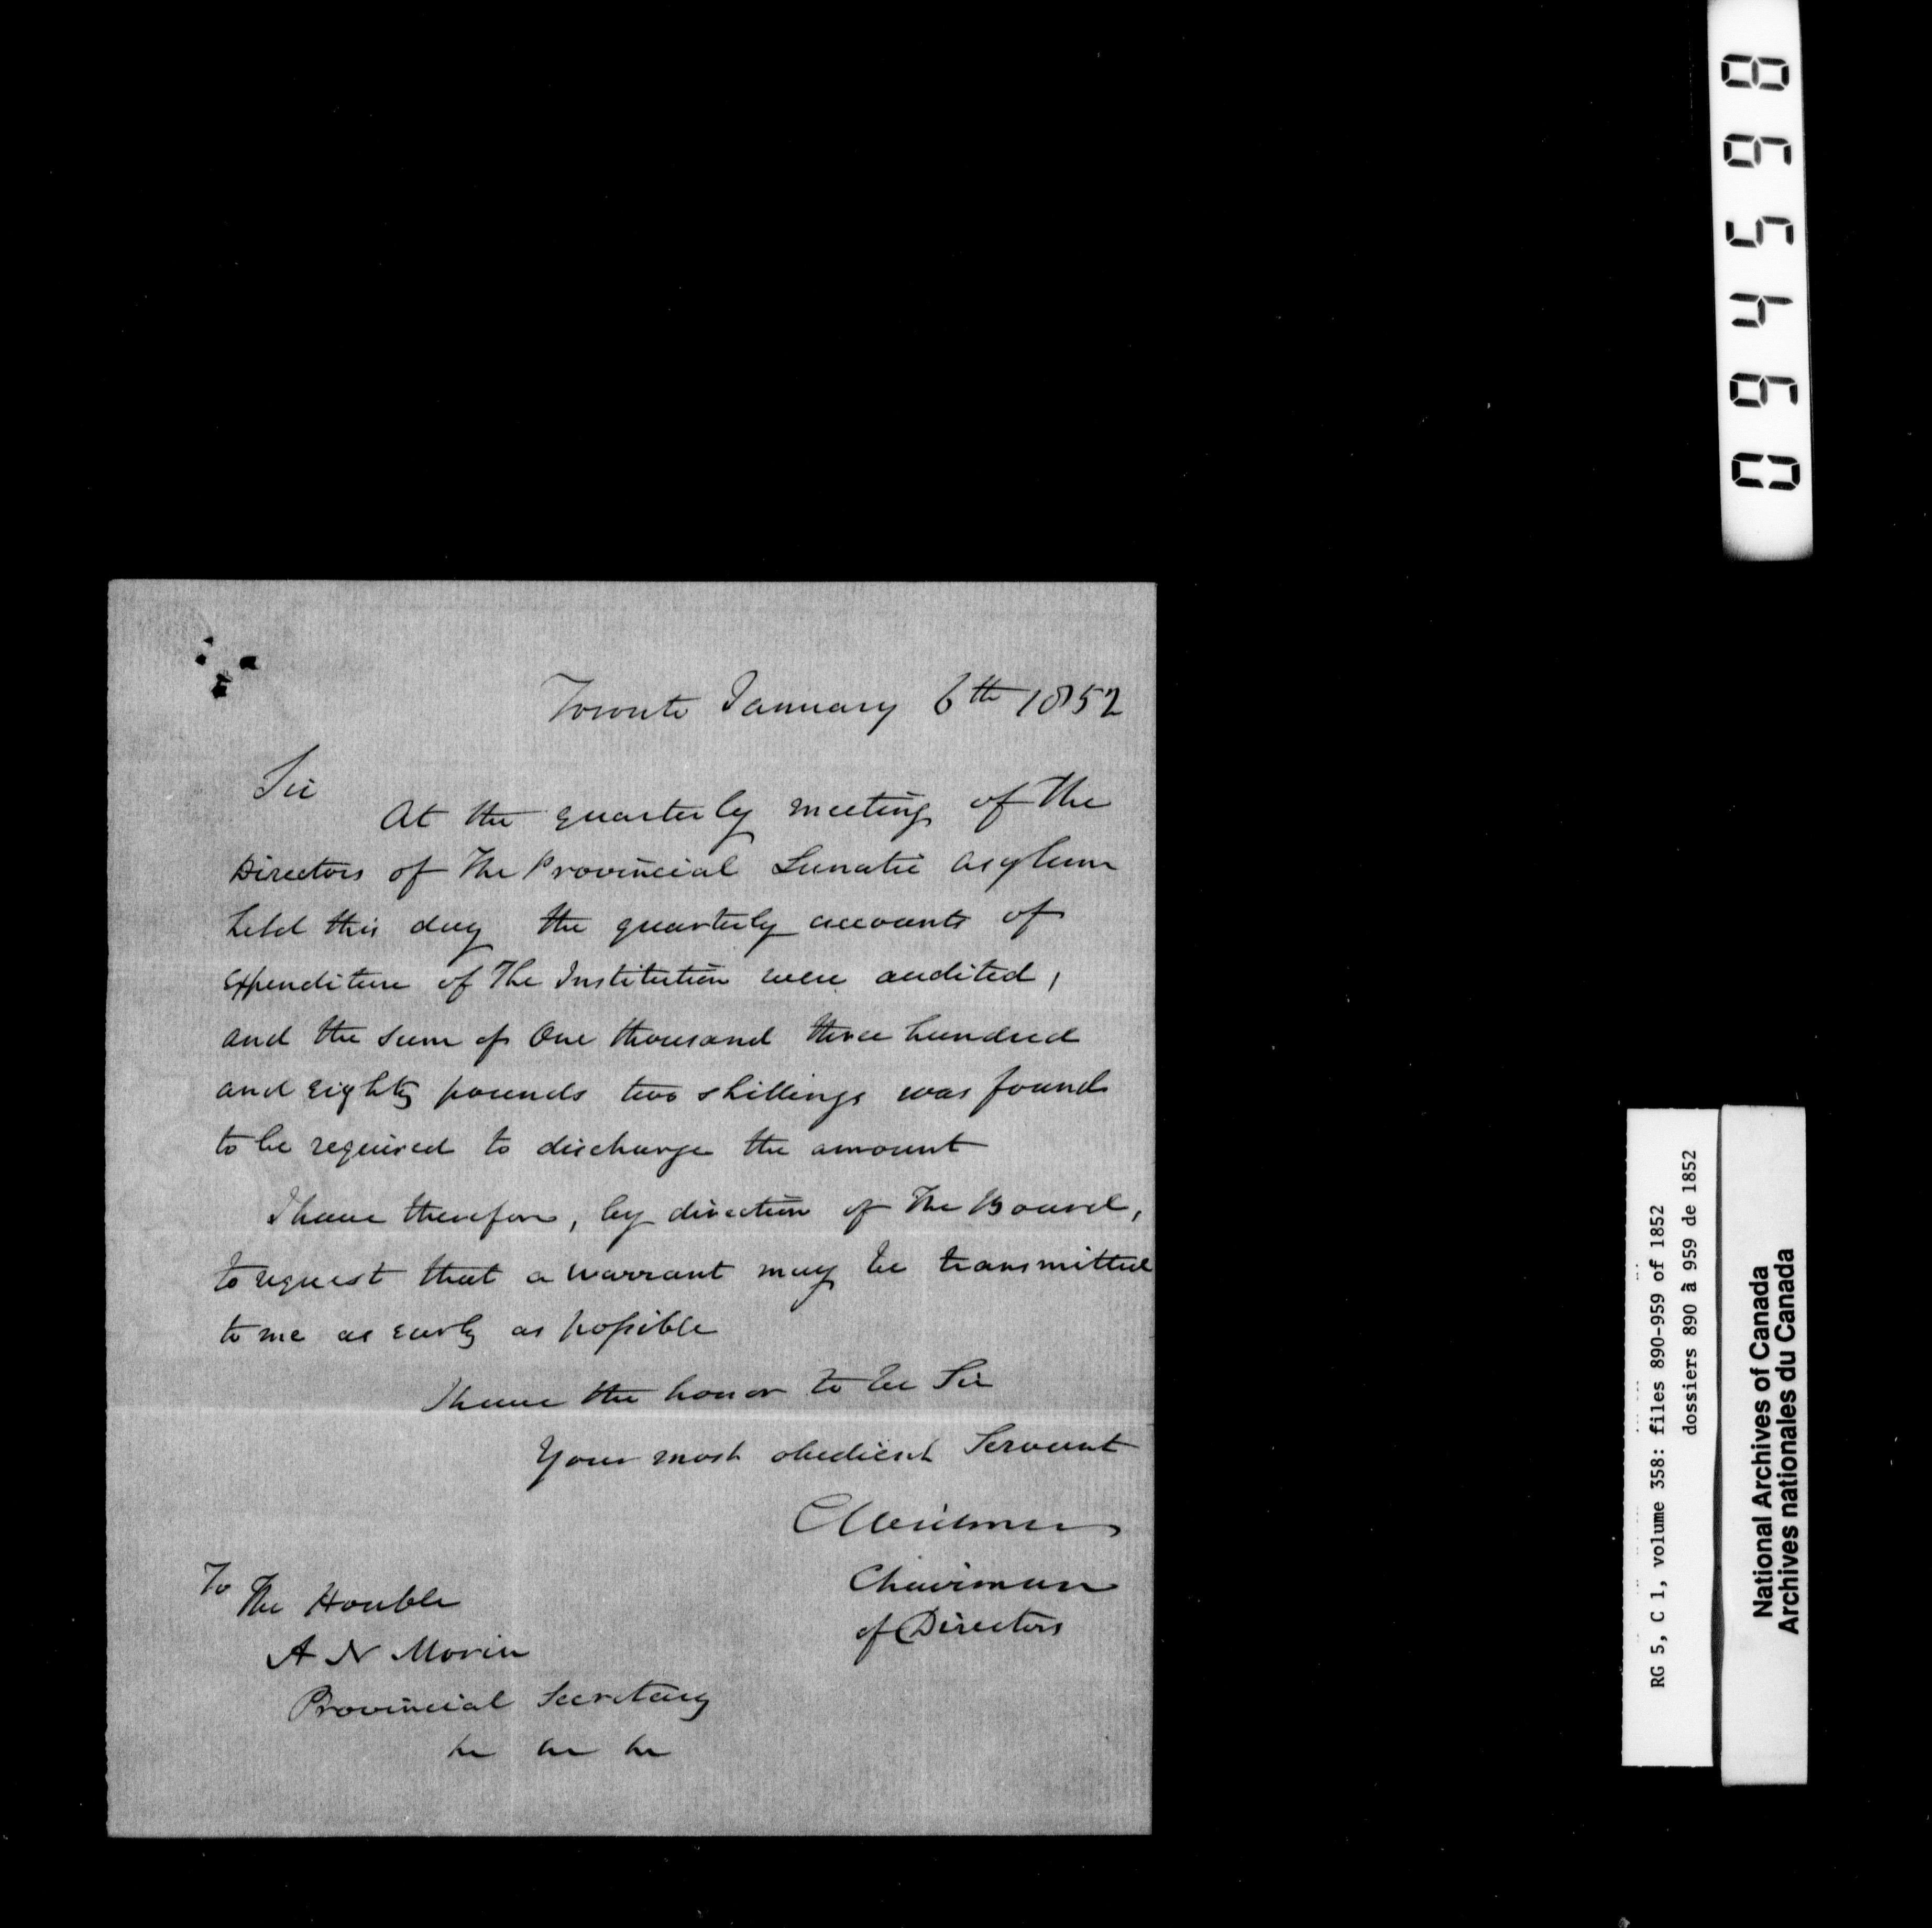 Toronto January 6th 1852
Sir
At the quarterly meeting of the
Directors of the Provincial Lunatic Asylum
held this day the quarterly accounts of
expenditure of The Institution were audited,
and the sum of One thousand three hundred
and eighty pounds two shillings was found
to be required to discharge the amount
I have therefore, by direction of the Board,
to request that a warrant may be transmitted
to me as early as possible
I have the honor to be Sir
Your most obedient Servant
Chairman
of Directors
To
The Honble
A N Morin
Provincial Secretary
064598
RG 5, C 1, volume 358: files 890-959 of 1852
dossiers 890 à 959 de 1852
National Archives of Canada
Archives nationales du Canada